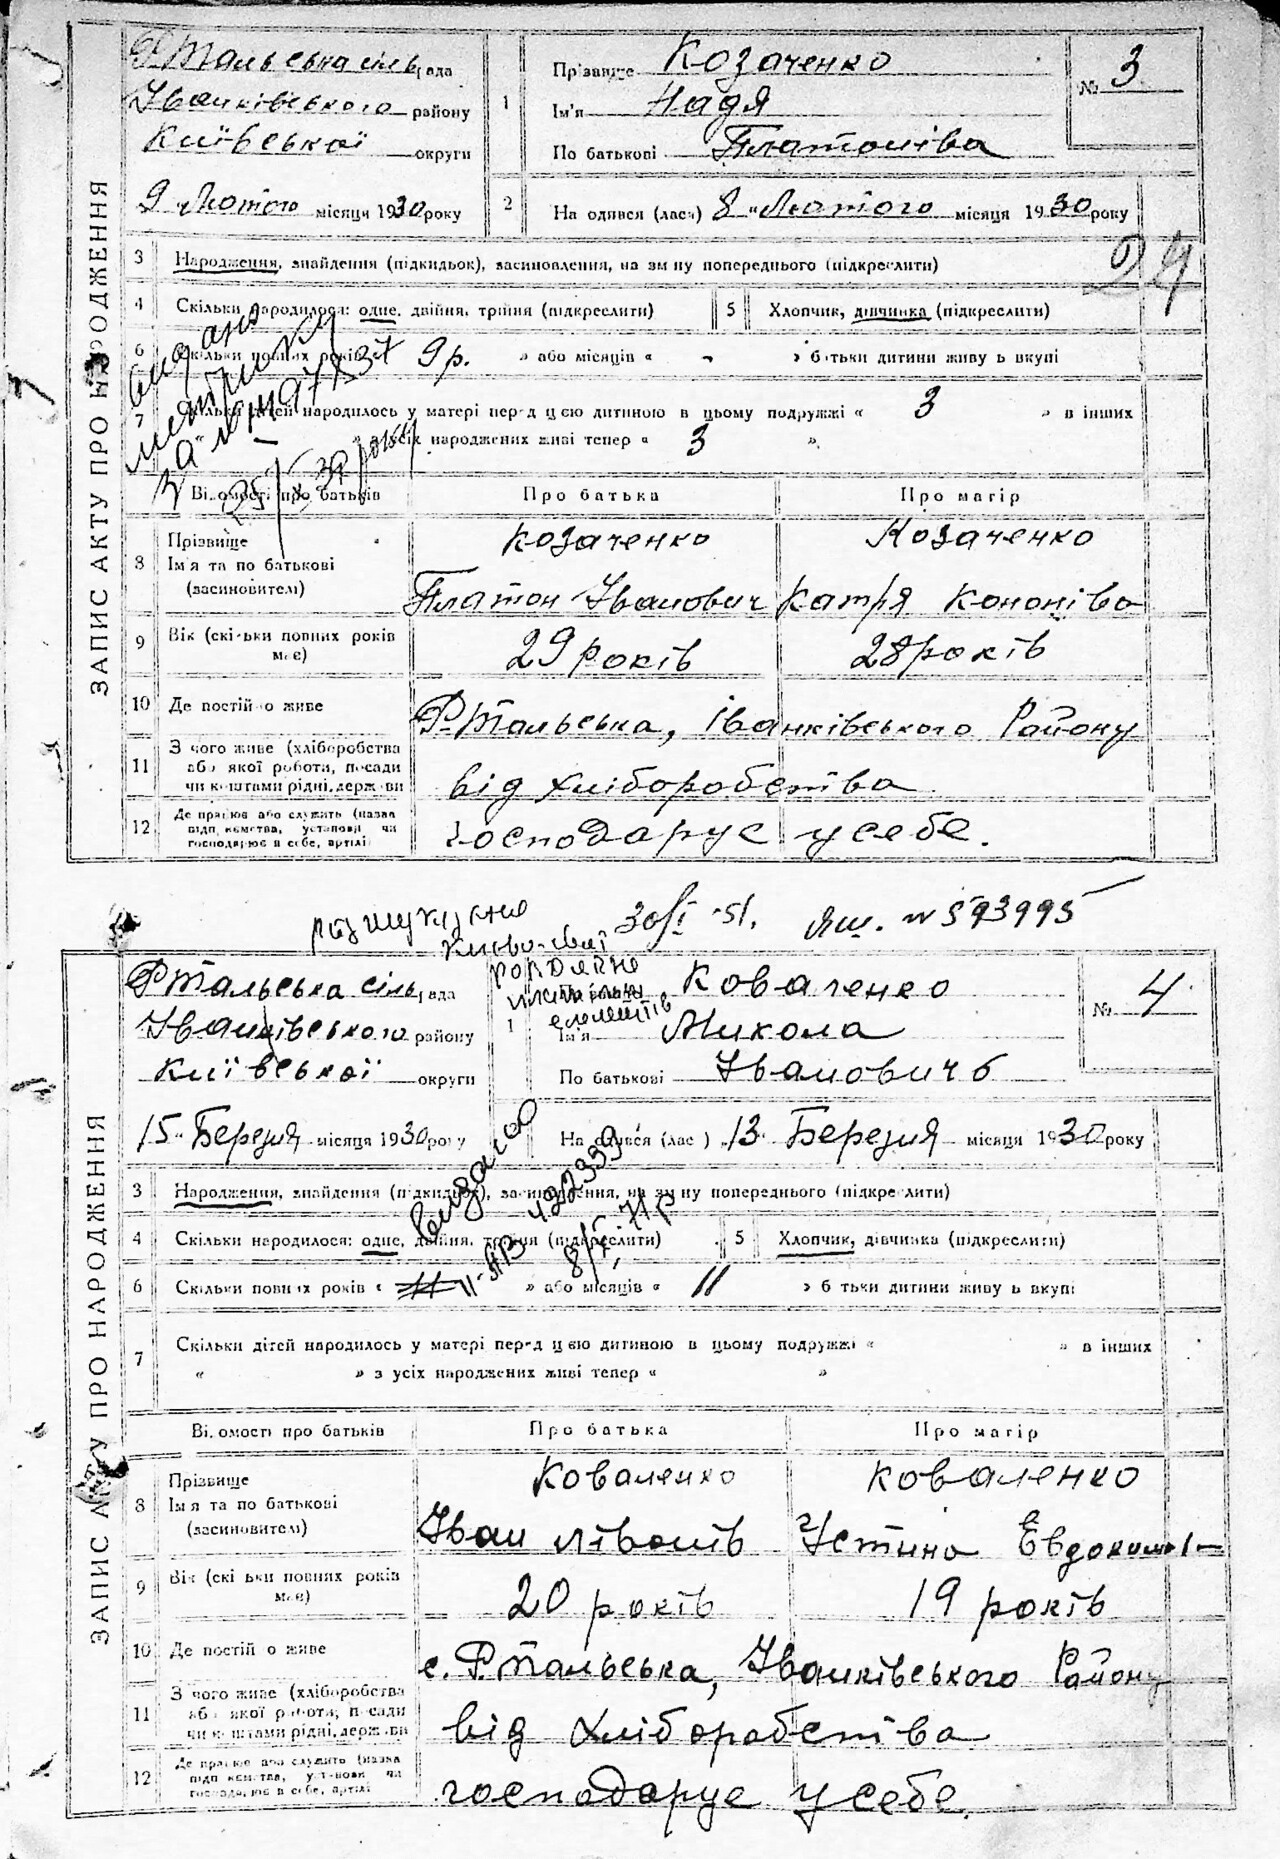 Р Тальська сільрада
Іванківського району
Київської округи
9 "Лютого місяця 1930 року
1
Прізвище Козаченко
Ім'я Надя
По батькові Платоніва
№ 3
2
На одився (лась) 8 "Лютого місяця 1930 року
24
ЗАПИС АКТУ ПРО НАРОДЖЕННЯ
3 Народження, знайдення (підкидьок), засиновлення, на зм ну попереднього (підкреслити)
4 Скільки народилося: одне, двійня, трійня (підкреслити)
5 Хлопчик, дівчинка (підкреслити)
6 Скільки повних років 9 р. » або місяців « - » б тьки дитини живу ь вкупі
7 Скільки дітей народилось у матері перед цією дитиною в цьому подружжі « 3 » в інших
» з усіх народжених живі тепер « 3 »
видано
метрику
за №
Ві омості про батьків
Про батька
Про матір
8 Прізвище
Ім'я та по батькові
(засиновителі)
Козаченко
Платон Іванович
Козаченко
Катря Кононіва
9 Вік (скільки повних років
має)
29 років
28 років
10 Де постій о живе
Р-Тальська, Іванківського Району
11 З чого живе (хліборобства
або якої роботи, посади
чи коштами рідні, держ ви
від хліборобства
12 Де працює або служить (назва
підп ємства, установи чи
господарює в себе, артілі
господарує у себе.
30/I-51. ЯШ. № 593995
Р Тальська сільрада
Іванківського району
Київської округи
15 "Березня місяця 1930 року
1
Прізвище Коваленко
Ім'я Микола
По батькові Іванович
№ 4
На одився (лас ) 13 "Березня місяця 1930 року
видано
II-АВ 422339
ЗАПИС АКТУ ПРО НАРОДЖЕННЯ
3 Народження, знайдення (підкидьок), засиновлення, на зм ну попереднього (підкреслити)
4 Скільки народилося: одне, двійня, трійня (підкреслити)
5 Хлопчик, дівчинка (підкреслити)
6 Скільки повних років « 11 » або місяців « 11 » б тьки дитини живу ь вкупі
7 Скільки дітей народилось у матері перед цією дитиною в цьому подружжі « » в інших
« » з усіх народжених живі тепер « »
Ві омості про батьків
Про батька
Про матір
8 Прізвище
Ім'я та по батькові
(засиновителі)
Коваленко
Іван
Коваленко
Устина
9 Вік (скі ьки повних років
має)
20 років
19 років
10 Де постій о живе
с. Р.Тальська, Іванківського Району
11 З чого живе (хліборобства
або якої роботи, посади
чи коштами рідні, держ ви
від хліборобства
12 Де працює або служить (назва
підп ємства, установи чи
господарює в себе, артілі
господарує у себе.